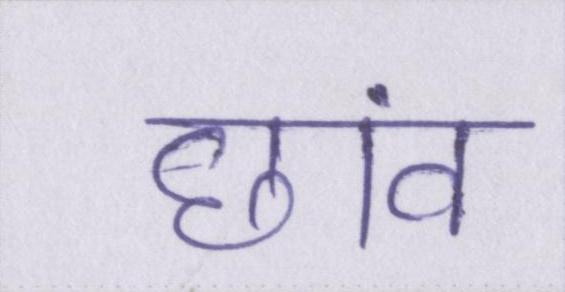 छांव